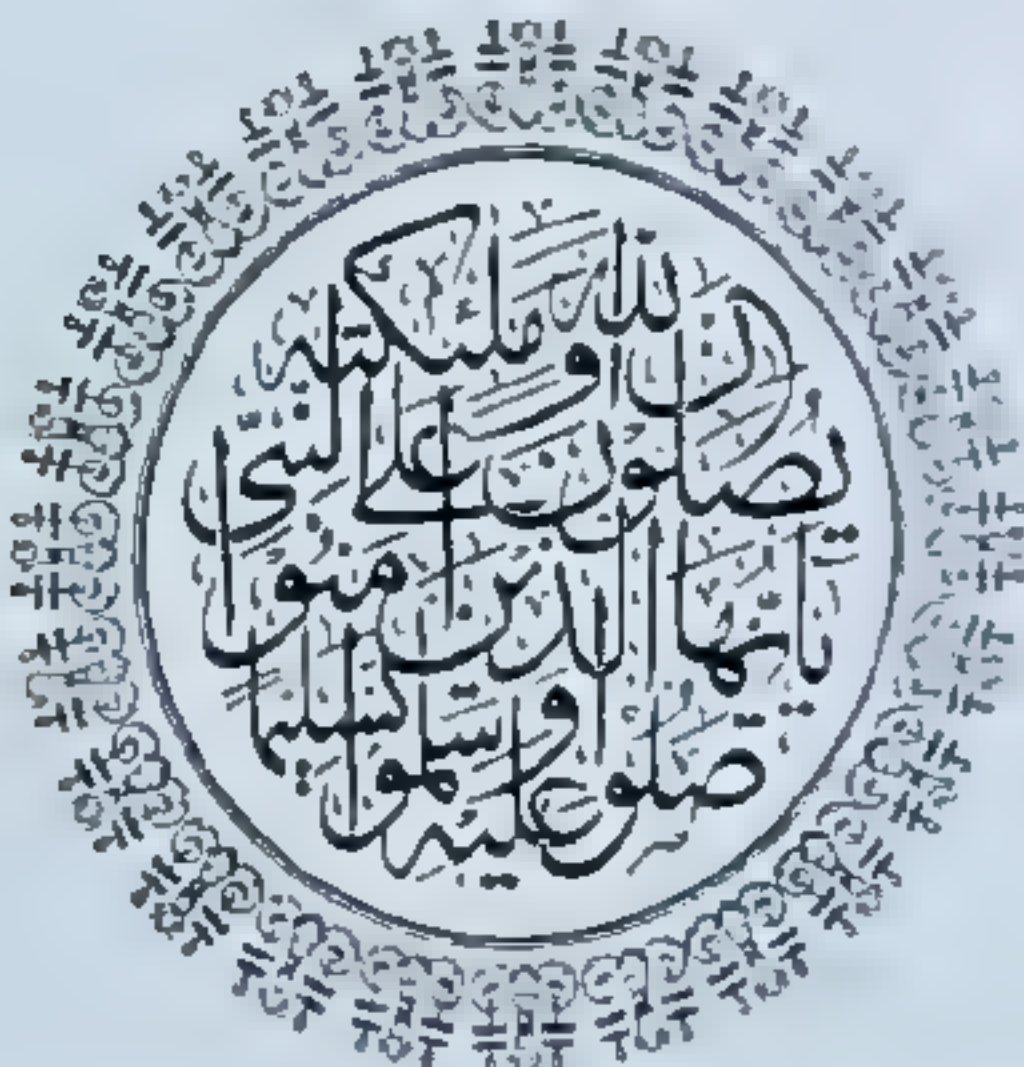 إن الله وملئكته
يصلون على النبى
يأيها الذين ءامنوا
صلوا عليه وسلموا تسليما